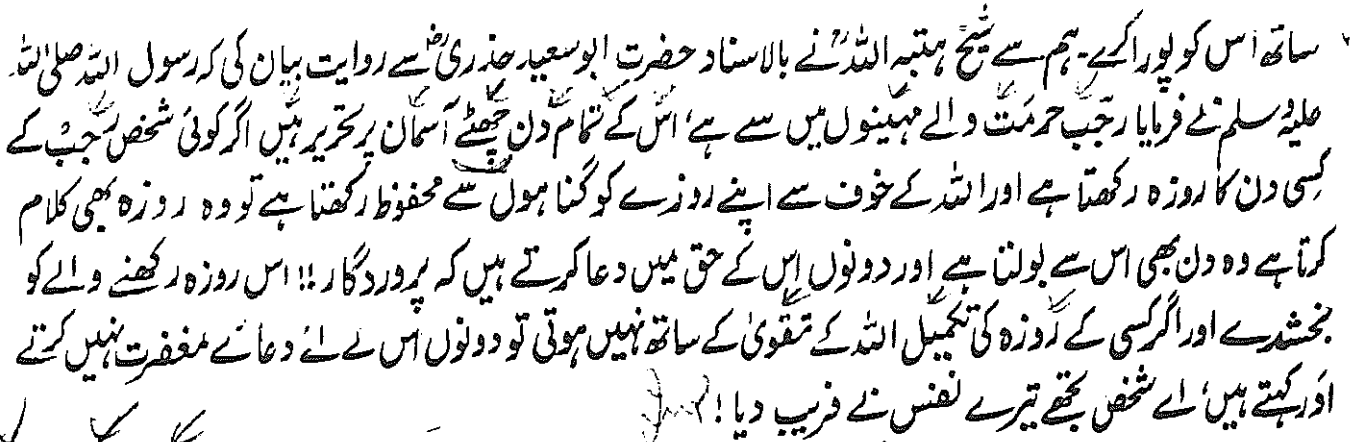 ساتھ اس کو پورا کرے۔ ہم سے شیخ ہبتہ اللہؒ نے بالاسناد حضرت ابوسعید خدریؓ سے روایت بیان کی کہ رسول اللہ صلی اللہ
علیہ وسلم نے فرمایا رجب حرمت والے مہینوں میں سے ہے، اس کے تمام دن چھٹے آسمان پر تحریر ہیں اگر کوئی شخص رجب کے
کسی دن کا روزہ رکھتا ہے اور اللہ کے خوف سے اپنے روزے کو گناہوں سے محفوظ رکھتا ہے تو وہ روزہ بھی کلام
کرتا ہے وہ دن بھی اس سے بولتا ہے اور دونوں اس کے حق میں دعا کرتے ہیں کہ پروردگار!! اس روزہ رکھنے والے کو
بخشدے اور اگر کسی کے روزہ کی تکمیل اللہ کے تقویٰ کے ساتھ نہیں ہوتی تو دونوں اس لے لئے دعائے مغفرت نہیں کرتے
اور کہتے ہیں، اے شخص تجھے تیرے نفس نے فریب دیا!